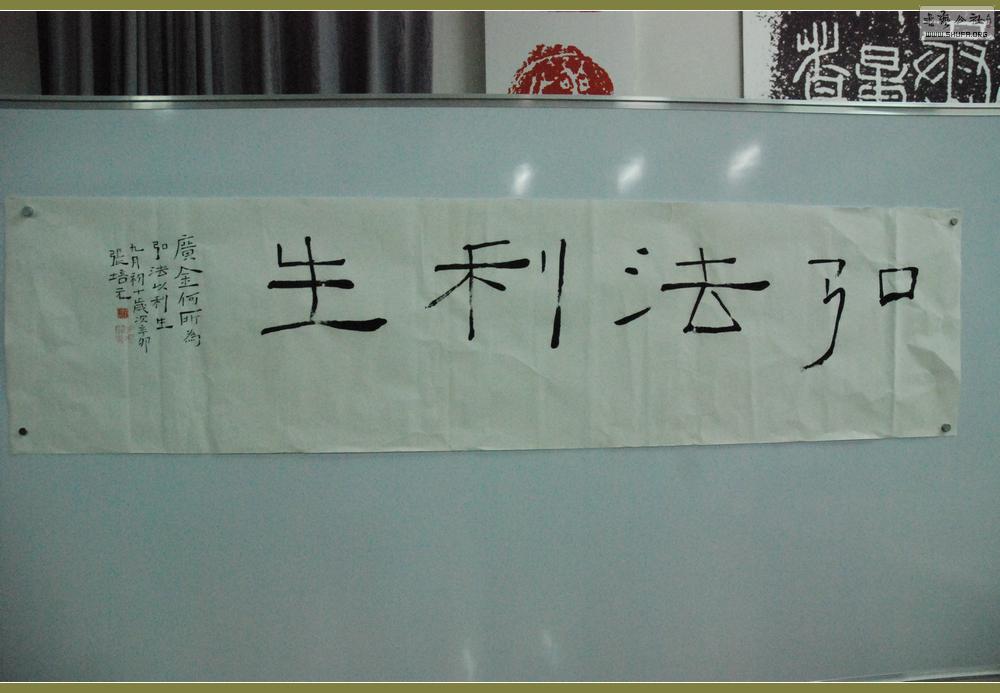 弘法利生
廣金何所為
弘法以利生
九月初十歲次辛卯
張培元
書藝公社
WWW.SHUFA.ORG